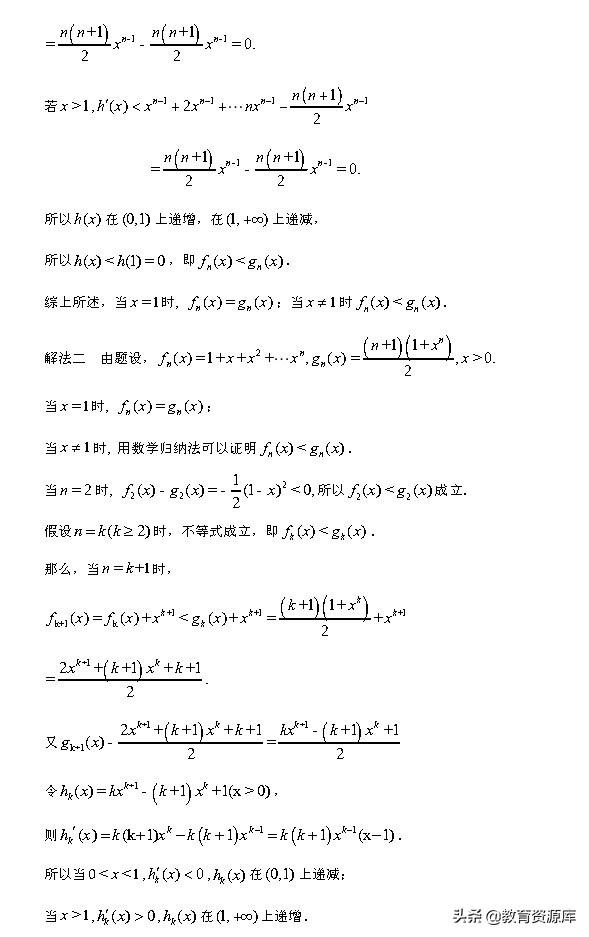 = n(n+1)/2 x^{n-1} - n(n+1)/2 x^{n-1} = 0.
若 x>1, h′(x) < x^{n-1} + 2x^{n-1} + ⋯nx^{n-1} − n(n+1)/2 x^{n-1}
= n(n+1)/2 x^{n-1} - n(n+1)/2 x^{n-1} = 0.
所以 h(x) 在 (0,1) 上递增，在 (1,+∞) 上递减，
所以 h(x) < h(1) = 0，即 f_n(x) < g_n(x).
综上所述，当 x=1 时，f_n(x) = g_n(x)；当 x≠1 时 f_n(x) < g_n(x).
解法二 由题设，f_n(x) = 1+x+x^2+⋯x^n, g_n(x) = (n+1)(1+x^n)/2, x>0.
当 x=1 时，f_n(x) = g_n(x)；
当 x≠1 时, 用数学归纳法可以证明 f_n(x) < g_n(x).
当 n=2 时，f_2(x) - g_2(x) = - 1/2 (1-x)^2 < 0, 所以 f_2(x) < g_2(x) 成立.
假设 n=k(k≥2) 时，不等式成立，即 f_k(x) < g_k(x).
那么，当 n=k+1 时，
f_{k+1}(x) = f_k(x)+x^{k+1} < g_k(x)+x^{k+1} = (k+1)(1+x^k)/2 + x^{k+1}
= (2x^{k+1}+(k+1)x^k+k+1)/2 .
又 g_{k+1}(x) - (2x^{k+1}+(k+1)x^k+k+1)/2 = (kx^{k+1} - (k+1)x^k+1)/2
令 h_k(x) = kx^{k+1} - (k+1)x^k+1(x>0)，
则 h_k′(x) = k(k+1)x^k − k(k+1)x^{k−1} = k(k+1)x^{k−1}(x−1).
所以当 0<x<1, h_k′(x)<0, h_k(x) 在 (0,1) 上递减；
当 x>1, h_k′(x)>0, h_k(x) 在 (1,+∞) 上递增.
头条 @教育资源库